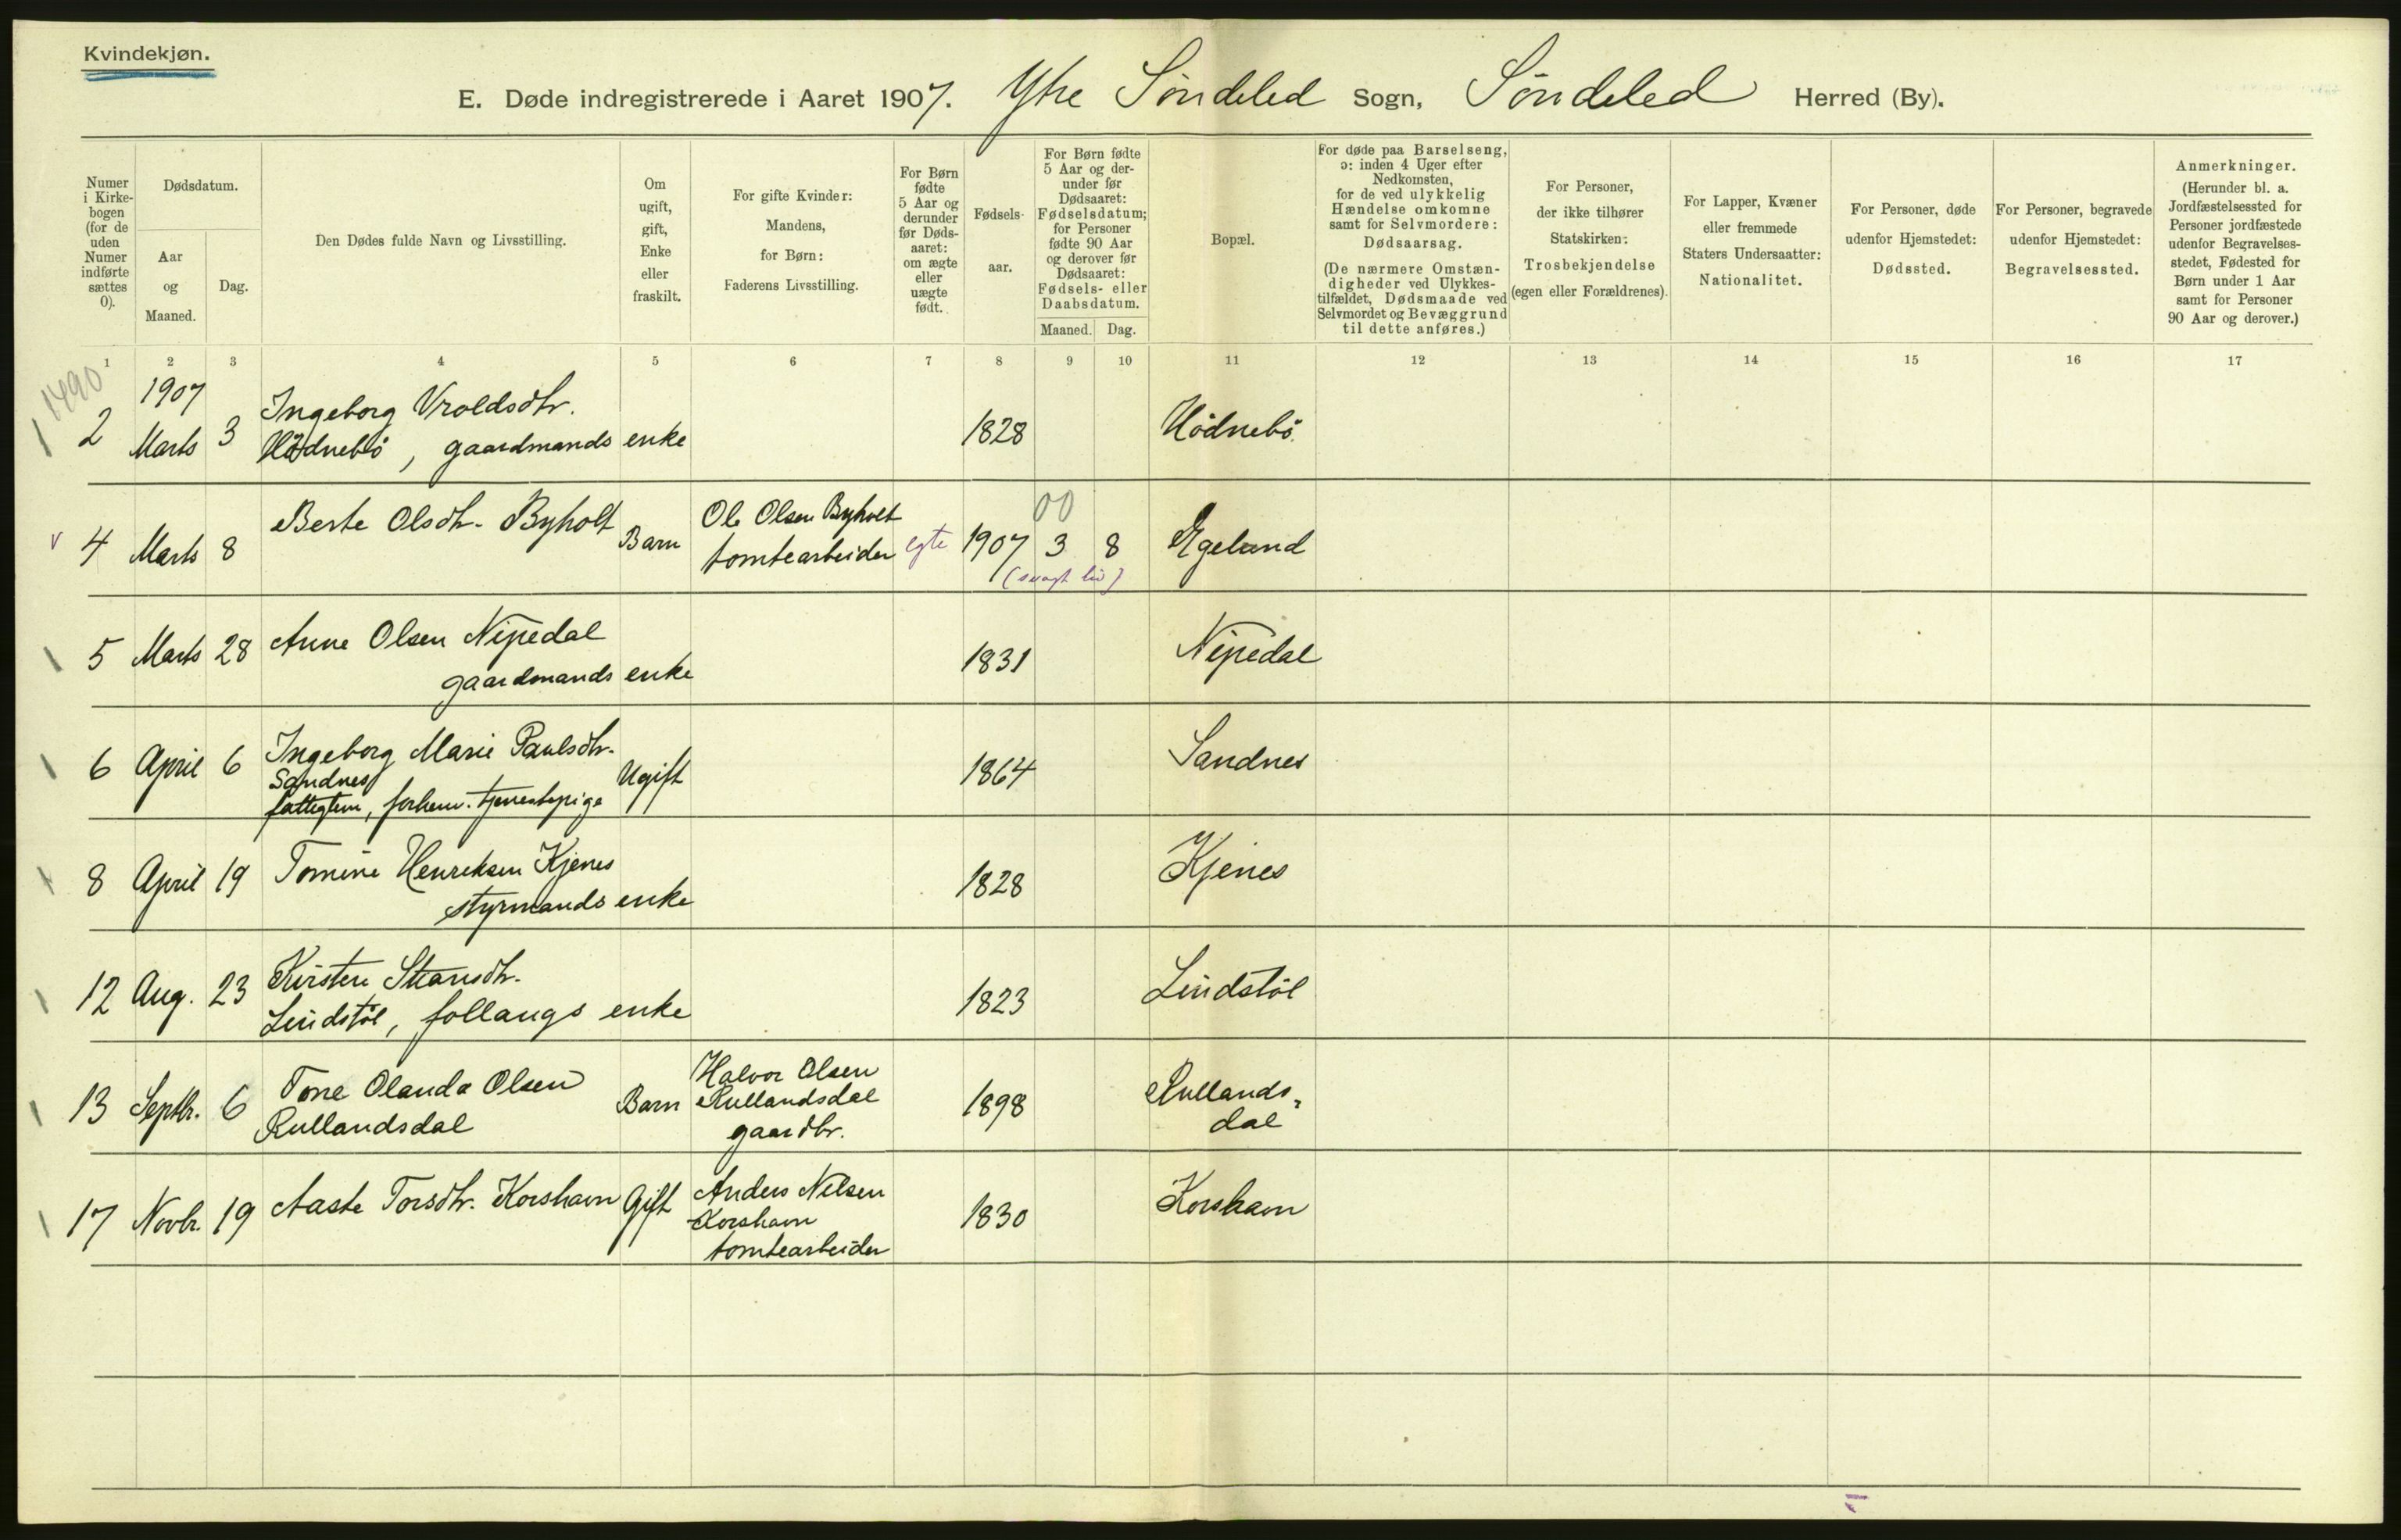 Kvindekjøn.
E. Døde indregistrerede i Aaret 1907. Ytre Söndeled Sogn, Söndeled Herred (By).
Numer i Kirke-bogen (for de uden Numer indførte sættes 0).
Dødsdatum.
Aar og Maaned.
Dag.
Den Dødes fulde Navn og Livsstilling.
Om ugift, gift, Enke eller fraskilt.
For gifte Kvinder: Mandens, for Børn: Faderens Livsstilling.
For Børn fødte 5 Aar og derunder før Døds-aaret: om ægte eller uægte født.
Fødsels-aar.
For Børn fødte 5 Aar og der-under før Dødsaaret: Fødselsdatum; for Personer fødte 90 Aar og derover før Dødsaaret: Fødsels- eller Daabsdatum.
Maaned. Dag.
Bopæl.
For døde paa Barselseng, ɔ: inden 4 Uger efter Nedkomsten, for de ved ulykkelig Hændelse omkomne samt for Selvmordere: Dødsaarsag.
(De nærmere Omstæn-digheder ved Ulykkes-tilfældet, Dødsmaade ved Selvmordet og Bevæggrund til dette anføres.)
For Personer, der ikke tilhører Statskirken: Trosbekjendelse (egen eller Forældrenes).
For Lapper, Kvæner eller fremmede Staters Undersaatter: Nationalitet.
For Personer, døde udenfor Hjemstedet: Dødssted.
For Personer, begravede udenfor Hjemstedet: Begravelsessted.
Anmerkninger.
(Herunder bl. a. Jordfæstelsessted for Personer jordfæstede udenfor Begravelses-stedet, Fødested for Børn under 1 Aar samt for Personer 90 Aar og derover.)
1 2 3 4 5 6 7 8 9 10 11 12 13 14 15 16 17
1490
1907
2 Marts 3 Ingeborg Vroldsdtr.
Hödnebö, gaardmands enke 1828 Hödnebö.
00
4 Marts 8 Berte Olsdtr. Byholt Barn Ole Olsen Byholt
tomtearbeider egte 1907 3 8 Egeland
(svagt liv)
5 Marts 28 Anne Olsen Nipedal
gaardmands enke 1831 Nipedal
6 April 6 Ingeborg Marie Paulsdtr.
Sandnes
fattiglem, forhenv. tjenestepige Ugift 1864 Sandnes
8 April 19 Tomine Henriksen Kjenes
styrmands enke 1828 Kjenes
12 Aug. 23 Kirsten
Lindstöl, follaugs enke 1823 Lindstöl
13 Septbr. 6 Tone Olanda Olsen
Rullandsdal Barn Halvor Olsen
Rullandsdal
gaardbr. 1898 Rullands-
dal
17 Novbr. 19 Aaste Torsdtr. Korshavn Gift Anders Nilsen
Korshavn
tomtearbeider 1830 Korshavn